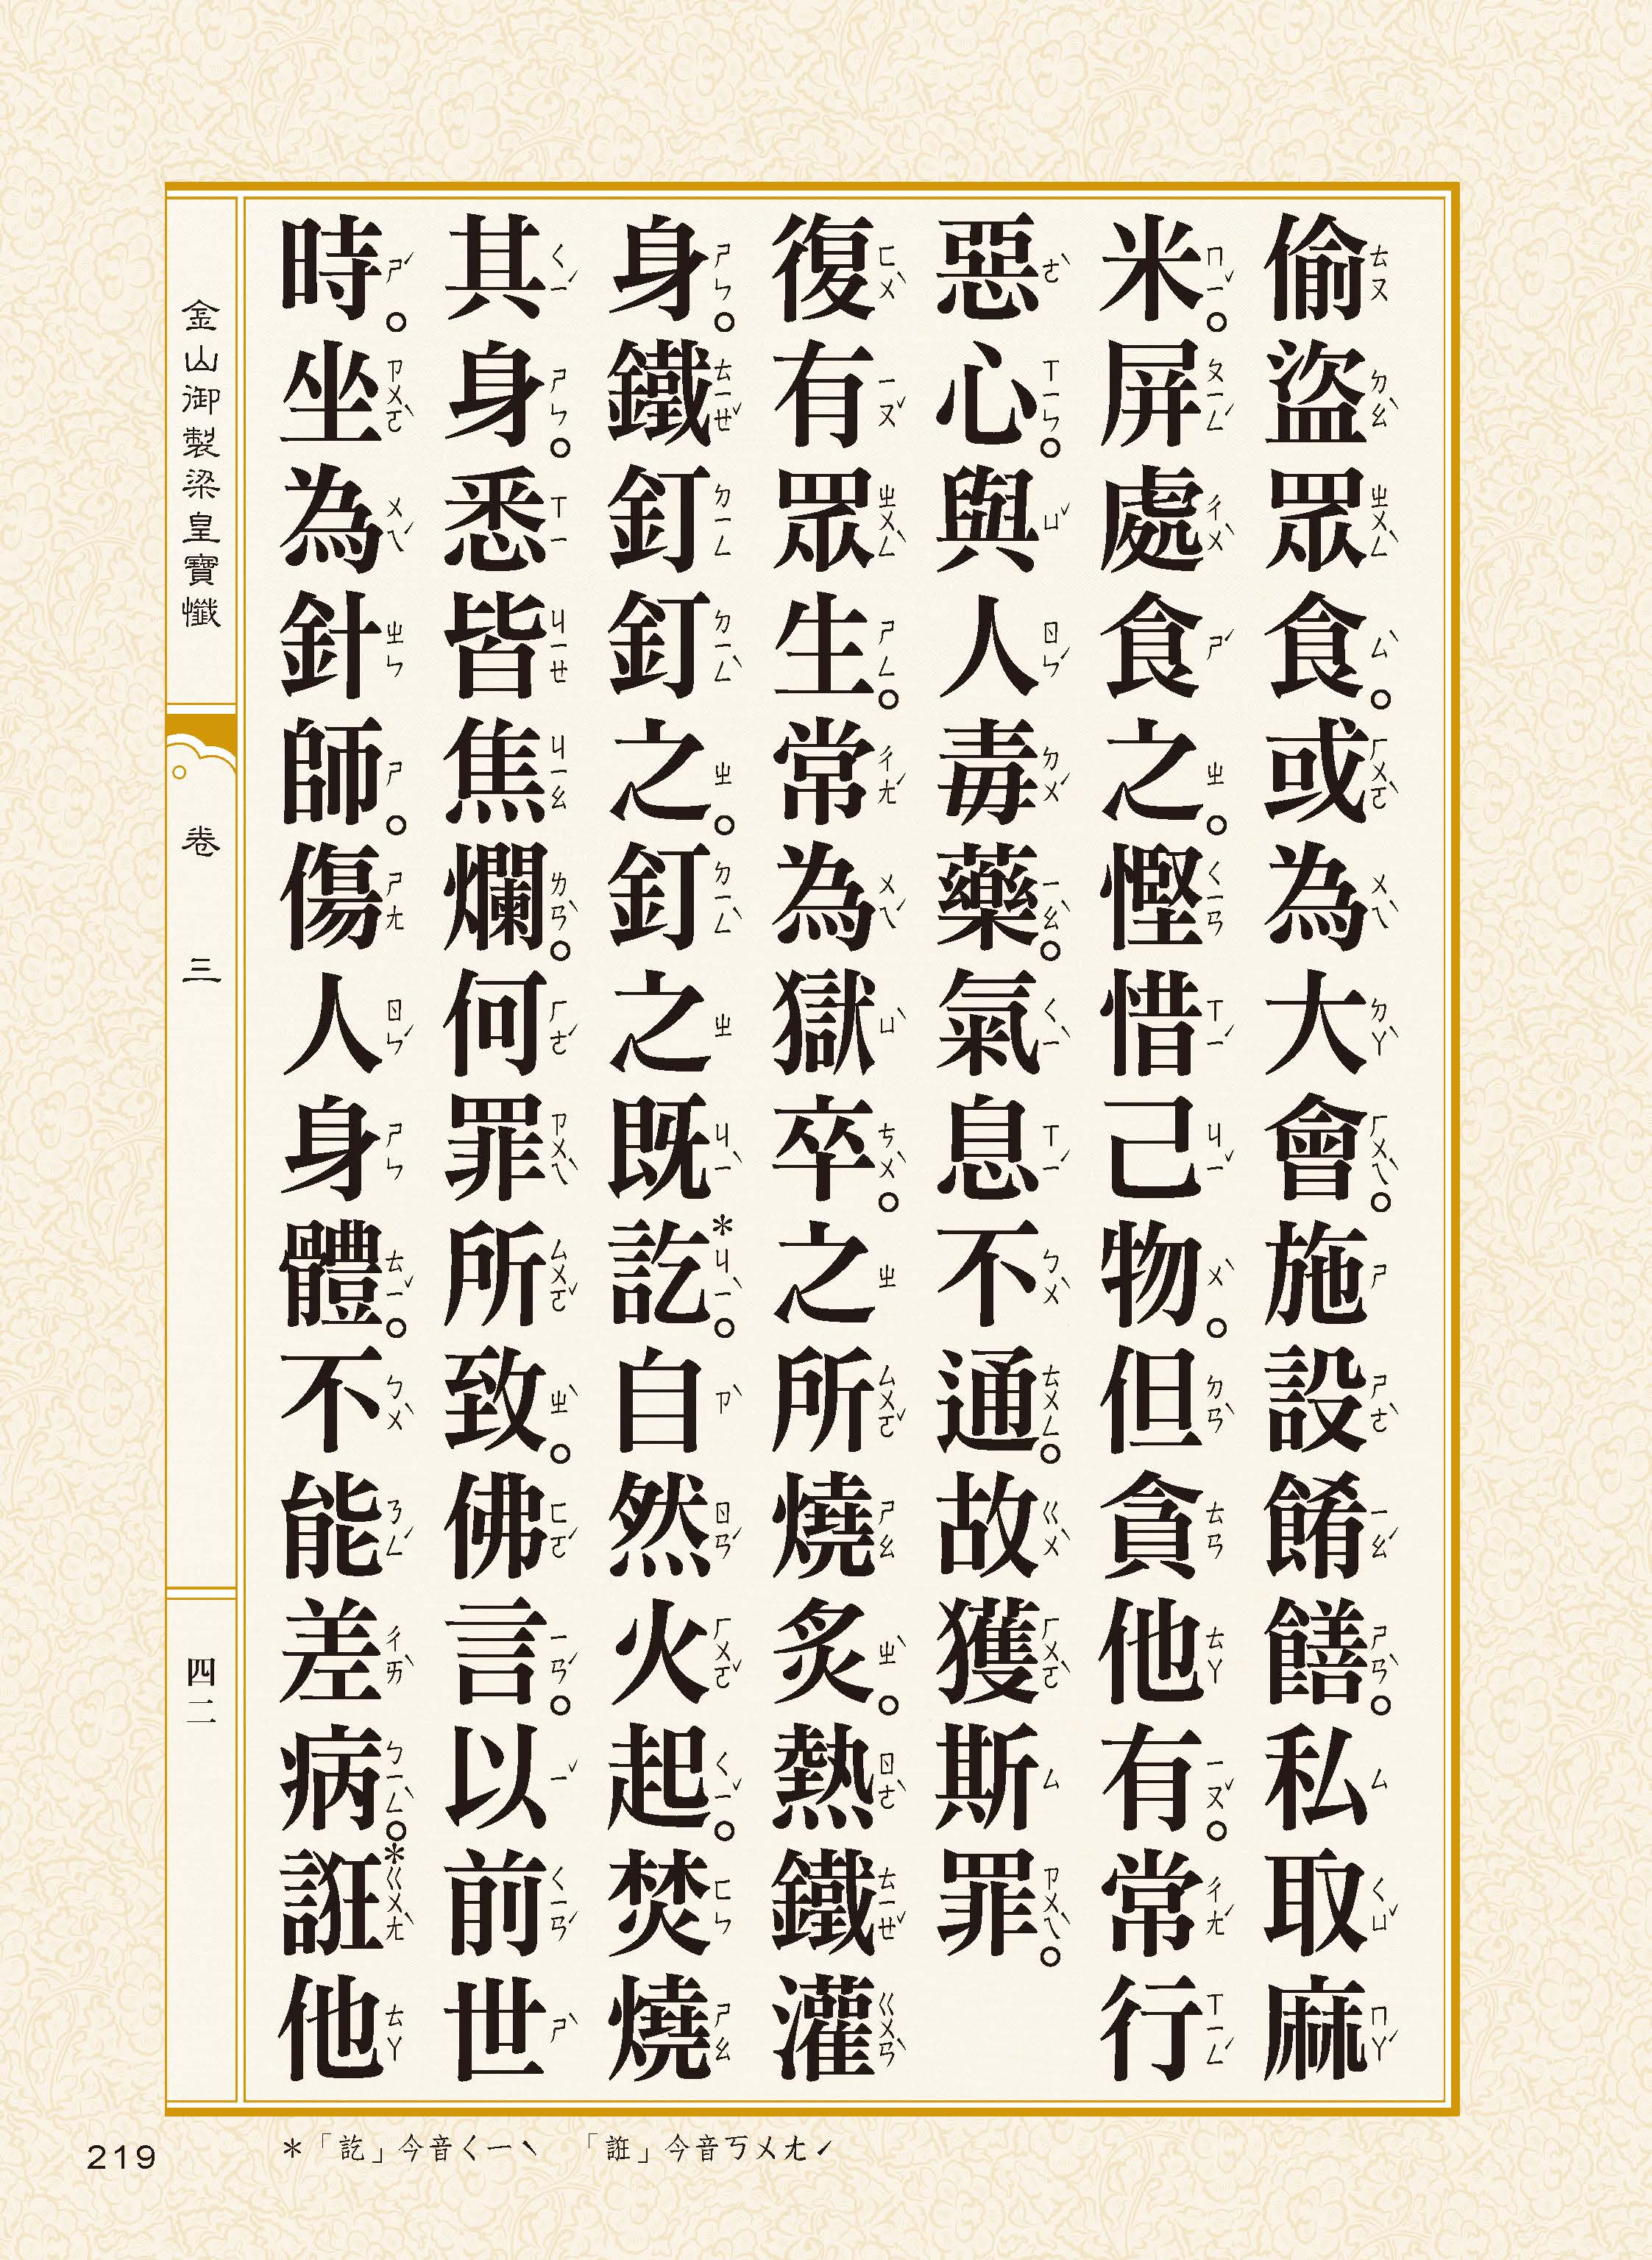 偷盜眾食。或為大會。施設餚饍。私取麻
米。屏處食之。慳惜己物。但貪他有。常行
惡心。與人毒藥。氣息不通。故獲斯罪。
復有眾生。常為獄卒。之所燒炙。熱鐵灌
身。鐵釘釘之。釘之既訖。自然火起。焚燒
其身。悉皆焦爛。何罪所致。佛言。以前世
時。坐為針師。傷人身體。不能差病。誑他
金山御製梁皇寶懺
卷三
四二
＊「訖」今音ㄑㄧˋ　「誑」今音ㄎㄨㄤˊ
219